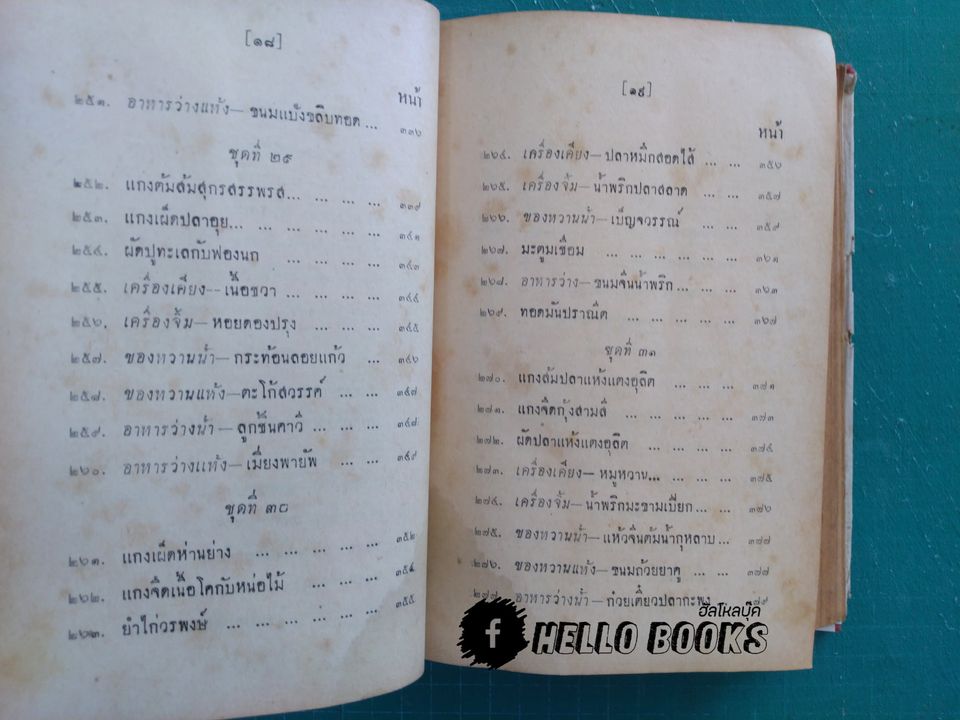 [๑๘]
หน้า
๒๕๑. อาหารว่างแห้ง—ขนมแป้งขลิบทอด ... ๓๓๖
ชุดที่ ๒๙
๒๕๒. แกงต้มส้มสุกรสรรพรส... ... ... ... ๓๓๙
๒๕๓. แกงเผ็ดปลาดุย... ... ... ... ... ๓๔๑
๒๕๔. ผัดปูทะเลกับฟองนก ... ... ... ... ๓๔๓
๒๕๕. เครื่องเคียง--เนื้อชวา ... ... ... ... ๓๔๔
๒๕๖. เครื่องจิ้ม—หอยดองปรุง ... ... ... ๓๔๕
๒๕๗. ของหวานน้ำ—กระท้อนลอยแก้ว ... ๓๔๖
๒๕๘. ของหวานแห้ง—ตะโก้สวรรค์ ... ... ๓๔๗
๒๕๙. อาหารว่างน้ำ—ลูกชิ้นคาวี ... ... ... ๓๔๘
๒๖๐. อาหารว่างแห้ง—เมี่ยงพายัพ ... ... ๓๔๙
ชุดที่ ๓๐
๒๖๑. แกงเผ็ดห่านย่าง ... ... ... ... ๓๕๒
๒๖๒. แกงจืดเนื้อโคกับหน่อไม้ ... ... ... ๓๕๔
๒๖๓. ยำไก่วรพงษ์ ... ... ... ... ... ๓๕๕
[๑๙]
หน้า
๒๖๔. เครื่องเคียง—ปลาหมึกสอดไส้ ... ... ๓๕๖
๒๖๕. เครื่องจิ้ม—น้ำพริกปลาสลาด ... ... ๓๕๗
๒๖๖. ของหวานน้ำ—เบ็ญจวรรณ์ ... ... ๓๕๙
๒๖๗. มะตูมเชื่อม ... ... ... ... ... ... ๓๖๑
๒๖๘. อาหารว่าง—ขนมจีนน้ำพริก ... ... ... ๓๖๓
๒๖๙. ทอดมันปราณีต ... ... ... ... ... ๓๖๗
ชุดที่ ๓๑
๒๗๐. แกงส้มปลาแห้งแตงอุลิต ... ... ... ๓๗๑
๒๗๑. แกงจืดกุ้งสามสี ... ... ... ... ... ๓๗๓
๒๗๒. ผัดปลาแห้งแตงอุลิต ... ... ... ... ๓๗๔
๒๗๓. เครื่องเคียง—หมูหวาน... ... ... ... ๓๗๕
๒๗๔. เครื่องจิ้ม—น้ำพริกมะขามเปียก ... ... ๓๗๖
๒๗๕. ของหวานน้ำ—แห้วจีนต้มน้ำกุหลาบ ... ๓๗๗
๒๗๖. ของหวานแห้ง—ขนมถ้วยยาคู ... ... ๓๗๗
๒๗๗. อาหารว่างน้ำ—ก๋วยเตี๋ยวปลากะพง ๓๗๙
ฮัลโหลบุ๊ค
f HELLO BOOKS